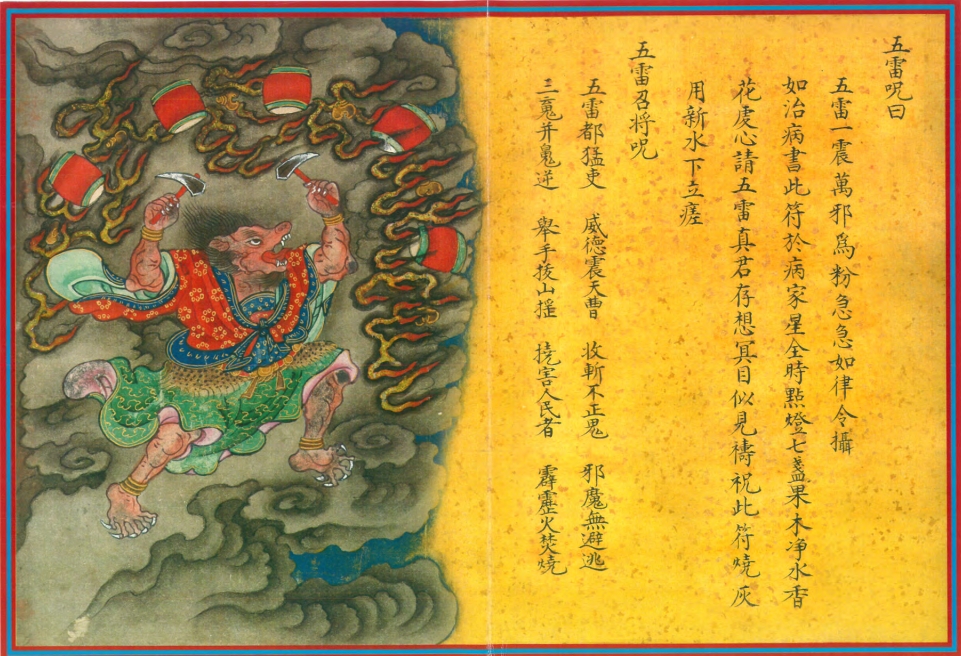 五雷呪曰
五雷一震萬邪爲粉急急如律令攝
如治病書此符於病家星全時點燈七盞果木净水香
花虔心請五雷真君存想冥目似見禱祝此符燒灰
用新水下立瘥
五雷召将呪
五雷都猛吏 威德震天曹 收斬不正鬼 邪魔無避逃
三 并 逆 舉手拔山摇 撓害人民者 霹靂火焚燒